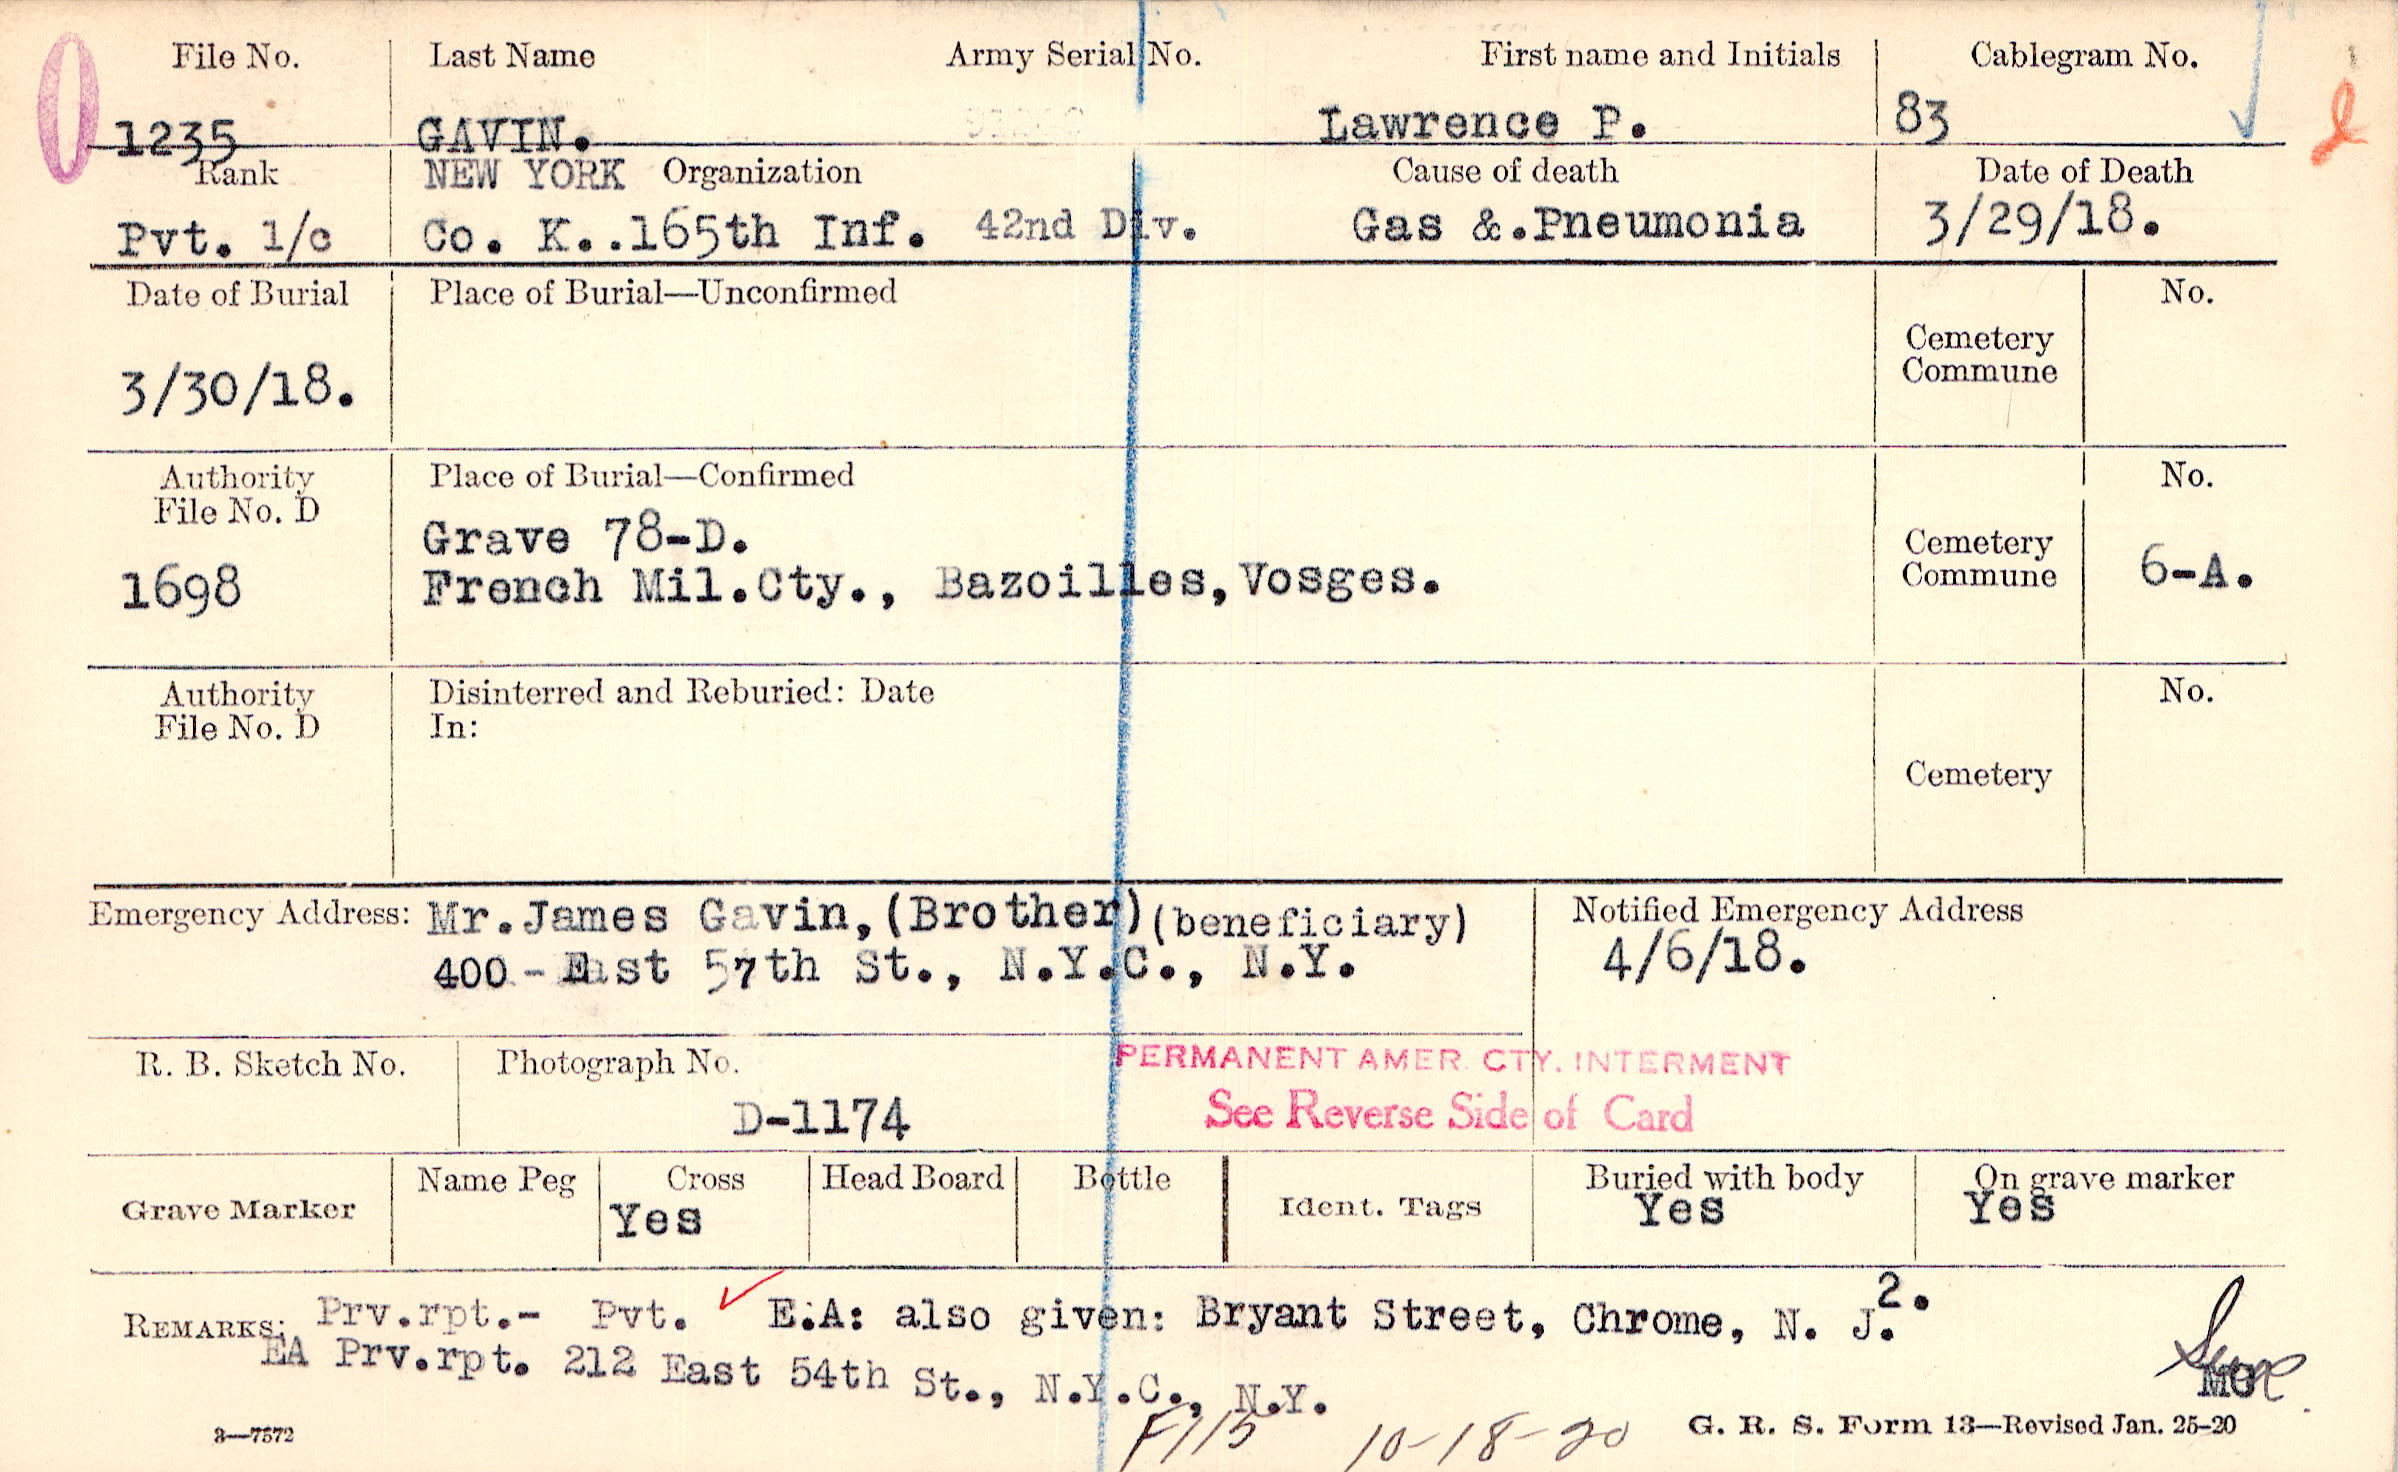 File No. Last Name Army Serial No. First name and Initials Cablegram No.
1235 GAVIN. Lawrence P. 83
Rank NEW YORK Organization Cause of death Date of Death
Pvt. 1/c Co. K..165th Inf. 42nd Div. Gas &.Pneumonia 3/29/18.
Date of Burial Place of Burial—Unconfirmed No.
Cemetery
Commune
3/30/18.
Authority Place of Burial—Confirmed No.
File No. D
Grave 78-D.
Cemetery
1698 French Mil.Cty., Bazoilles,Vosges. Commune 6-A.
Authority Disinterred and Reburied: Date No.
File No. D In:
Cemetery
Emergency Address: Mr.James Gavin,(Brother)(beneficiary) Notified Emergency Address
400-East 57th St., N.Y.C., N.Y. 4/6/18.
R. B. Sketch No. Photograph No. PERMANENT AMER. CTY. INTERMENT
D-1174 See Reverse Side of Card
Grave Marker Name Peg Cross Head Board Bottle Ident. Tags Buried with body On grave marker
Yes Yes Yes
2.
REMARKS: Prv.rpt.- Pvt. ✓ E.A: also given: Bryant Street, Chrome, N. J.
EA Prv.rpt. 212 East 54th St., N.Y.C., N.Y.
MG
3—7572 F115 10-18-20 G. R. S. Form 13—Revised Jan. 25-20